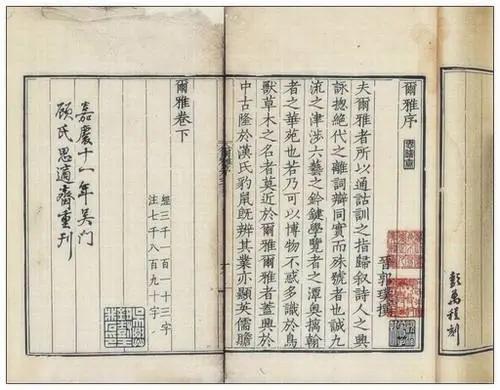 彭萬程刻
爾雅序
晉郭璞撰
夫爾雅者所以通詁訓之指歸叙詩人之興
詠揔絶代之離詞辯同實而殊號者也誠九
流之津涉六藝之鈐鍵學覽者之潭奥摛翰
者之華苑也若乃可以博物不惑多識於鳥
獸草木之名者莫近於爾雅爾雅者蓋興於
中古隆於漢氏豹鼠既辨其業亦顯英儒贍
爾雅卷下
經三千一百一十三字
注七千八百九十字
嘉慶十一年吴门
顧氏思適齋重刊